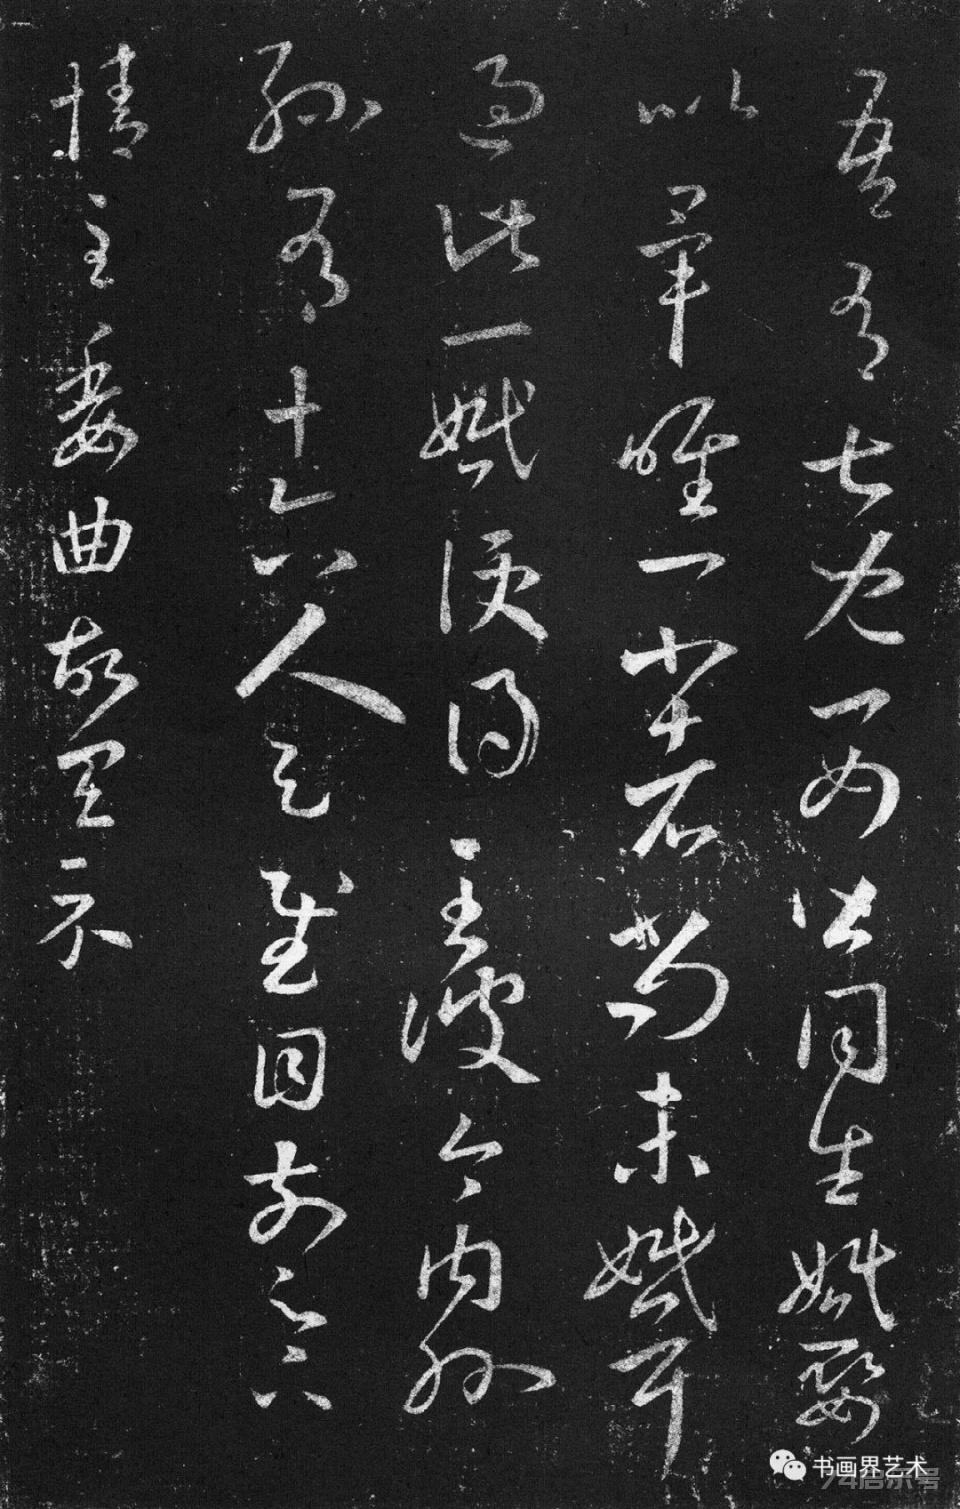 吾有七儿一女皆同生婚娶
以毕唯一小者尚未婚耳
过此一婚便得至彼今内外
孙有十六人足慰目前足下
情至委曲故具示
书画界艺术
74启示号